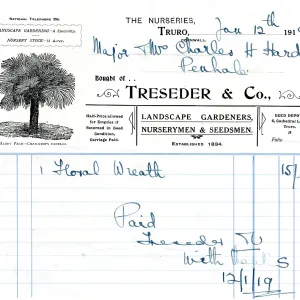 NATIONAL TELEPHONE
LANDSCAPE GARDENING—A Speciality.
NURSERY STOCK—
THE NURSERIES,
TRURO,
CORNWALL.
Jan 12th 191
Major & Mrs Charles H Hard
Penhale
Bought of..
TRESEDER & Co.,
Half-Price allowed
for Empties if
Returned in Good
Condition,
Carriage Paid.
LANDSCAPE GARDENERS,
NURSERYMEN & SEEDSMEN.
ESTABLISHED 1834.
SEED DEPOT
Cathedral L
Truro.
Folio
1 Floral Wreath 15/-
Paid
Treseder
With thanks
12/1/19